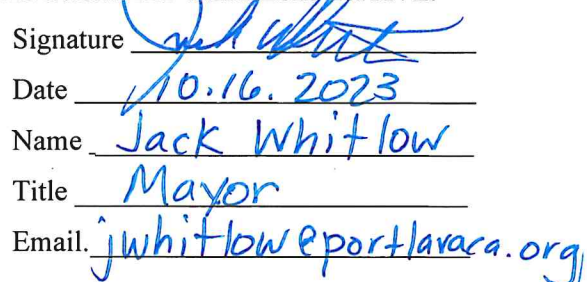 Signature
Date 10.16.2023
Name Jack Whitlow
Title Mayor
Email. jwhitlow@portlavaca.org